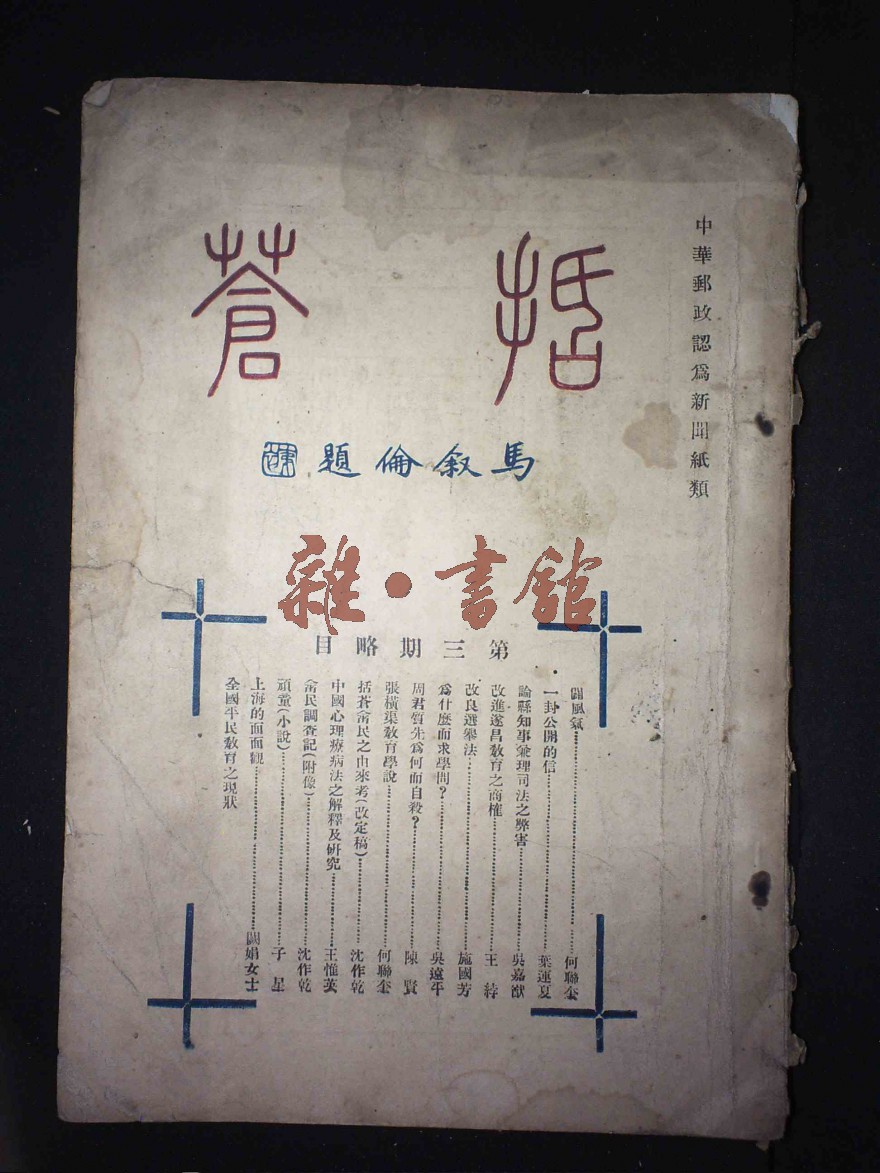 中華郵政認爲新聞紙類
括蒼
馬叙倫題
雜·書館
第三期略目
闢風氣 何聯奎
一封公開的信 葉運夏
論縣知事兼理司法之弊害 吳嘉猷
改進遂昌敎育之商榷 王綍
改良選舉法 施國芳
爲什麼而求學問？ 吳遠平
周君質先爲何而自殺？ 陳賢
張橫渠敎育學說 何聯奎
括蒼畬民之由來考（改定稿） 沈作乾
中國心理療病法之解釋及研究 王惟英
畬民調查記（附像） 沈作乾
頑童（小說） 子星
上海的面面觀 闕娟女士
全國平民敎育之現狀